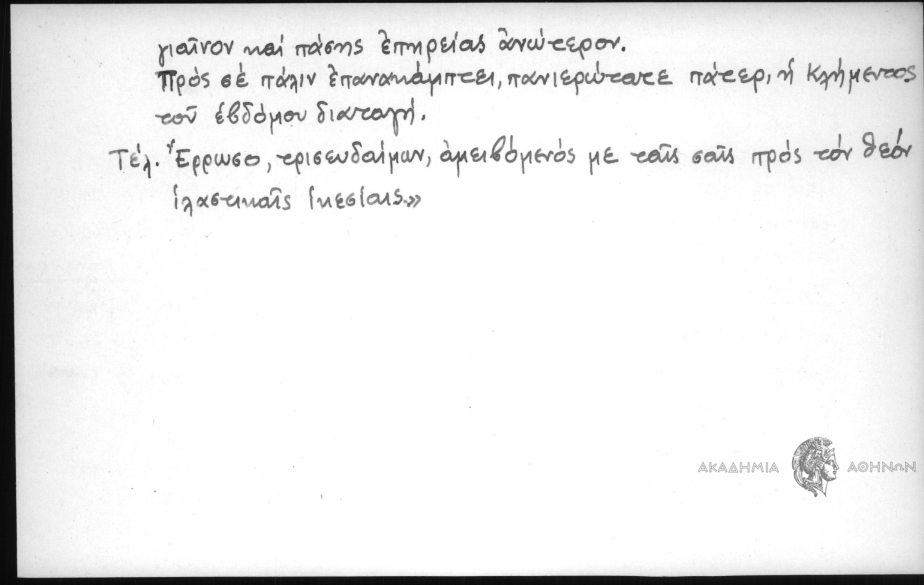 γιαῖνον καί πάσης ἐπηρείας ἀνώτερον.
Πρός σέ πάλιν ἐπανακάμπτει, πανιερώτατε πάτερ, ἡ Κλήμεντος
τοῦ ἑβδόμου διαταγή.
Τέλ. Ἔρρωσο, τρισευδαίμων, ἀμειβόμενός με ταῖς σαῖς πρός τόν θεόν
ἱλαστικαῖς ἱκεσίαις»
ΑΚΑΔΗΜΙΑ ΑΘΗΝΩΝ